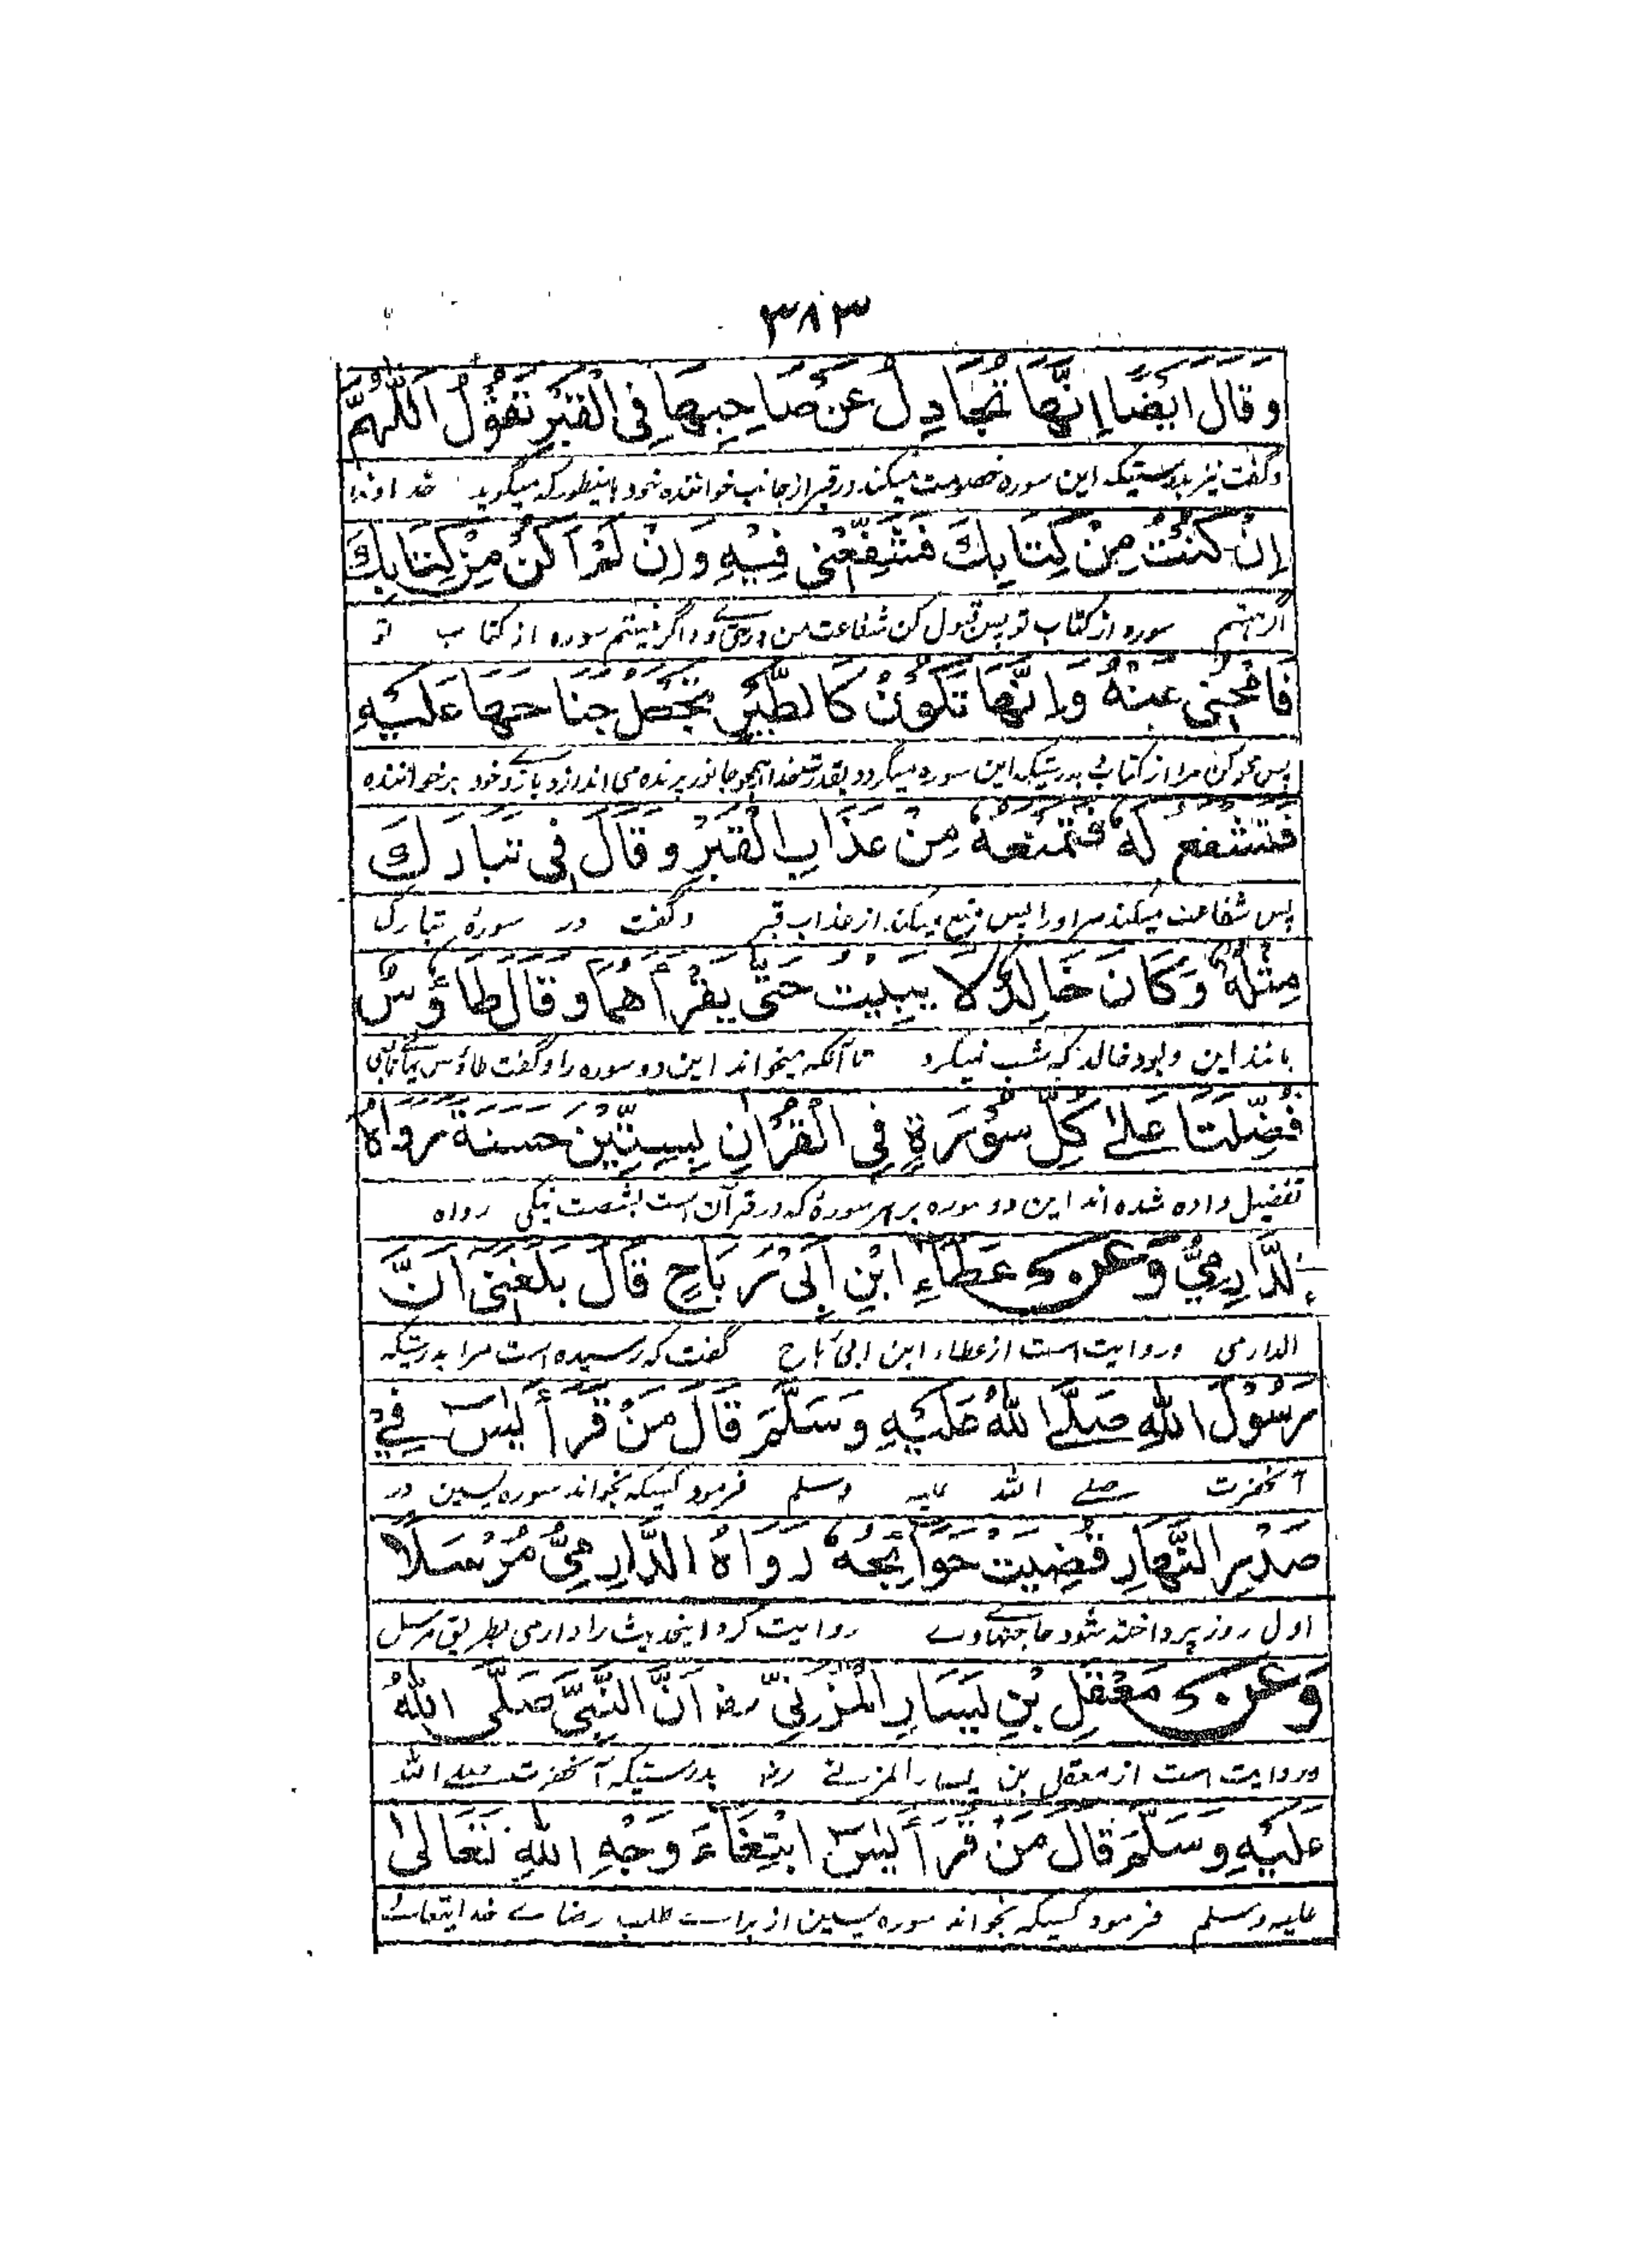 ۳۸۳
وَقَالَ اَيْضًا اِنَّهَا تُجَادِلُ عَنْ صَاحِبِهَا فِي الْقَبْرِ تَقُوْلُ اَللّٰهُمَّ
وگفت نیز بدرستیکه این سوره خصومت میکند در قبر از جانب خواننده خود باینطور که میگوید خداوندا
اِنْ كُنْتُ مِنْ كِتَابِكَ فَشَفِّعْنِي فِيْهِ وَاِنْ لَمْ اَكُنْ مِنْ كِتَابِكَ
اگر هستم سوره از کتاب تو پس قبول کن شفاعت من در حق وے واگر نیستم سوره از کتاب تو
فَامْحُنِي عَنْهُ وَاِنَّهَا تَكُوْنُ كَالطَّيْرِ تَجْعَلُ جَنَاحَهَا عَلَيْهِ
پس محو کن مرا از کتاب بدرستیکه این سوره میگردد بقدرت خدا همچو جانور پرنده می اندازد بازوے خود بر خواننده
فَتَشْفَعُ لَهُ فَتَمْنَعُهُ مِنْ عَذَابِ الْقَبْرِ وَقَالَ فِي تَبَارَكَ
پس شفاعت میکند مر او را پس منع میکند از عذاب قبر وگفت در سورۀ تبارک
مِثْلَهُ وَكَانَ خَالِدٌ لَا يَبِيْتُ حَتّٰى يَقْرَأَهُمَا وَقَالَ طَاؤُسٌ
مانند این و بود خالد که شب نمیکرد تا آنکه میخواند این دو سوره را وگفت طاؤس
فُضِّلَتَا عَلٰى كُلِّ سُوْرَةٍ فِي الْقُرْاٰنِ بِسِتِّيْنَ حَسَنَةً رَوَاهُ
تفضیل داده شده اند این دو سوره بر هر سورۀ که در قرآن است بشصت نیکی رواه
الدَّارِمِيُّ وَعَنْ عَطَاءِ ابْنِ اَبِي رَبَاحٍ قَالَ بَلَغَنِي اَنَّ
الدارمی وروایت است از عطاء ابن ابی رباح گفت که رسیده است مرا بدرستیکه
رَسُوْلَ اللّٰهِ صَلَّى اللّٰهُ عَلَيْهِ وَسَلَّمَ قَالَ مَنْ قَرَأَ يٰسٓ فِيْ
آنحضرت صلے الله علیه وسلم فرمود کسیکه بخواند سوره یسین در
صَدْرِ النَّهَارِ قُضِيَتْ حَوَائِجُهُ رَوَاهُ الدَّارِمِيُّ مُرْسَلًا
اول روز پرداخته شود حاجتهاے وے روایت کرد اینحدیث را دارمی بطریق مرسل
وَعَنْ مَعْقِلِ بْنِ يَسَارِ الْمُزَنِيِّ رض اَنَّ النَّبِيَّ صَلَّى اللّٰهُ
وروایت است از معقل بن یسار المزنے رض بدرستیکه آنحضرت صلے الله
عَلَيْهِ وَسَلَّمَ قَالَ مَنْ قَرَأَ يٰسٓ ابْتِغَاءَ وَجْهِ اللّٰهِ تَعَالٰى
علیه وسلم فرمود کسیکه بخواند سوره یسین از براے طلب رضاے خدایتعالے